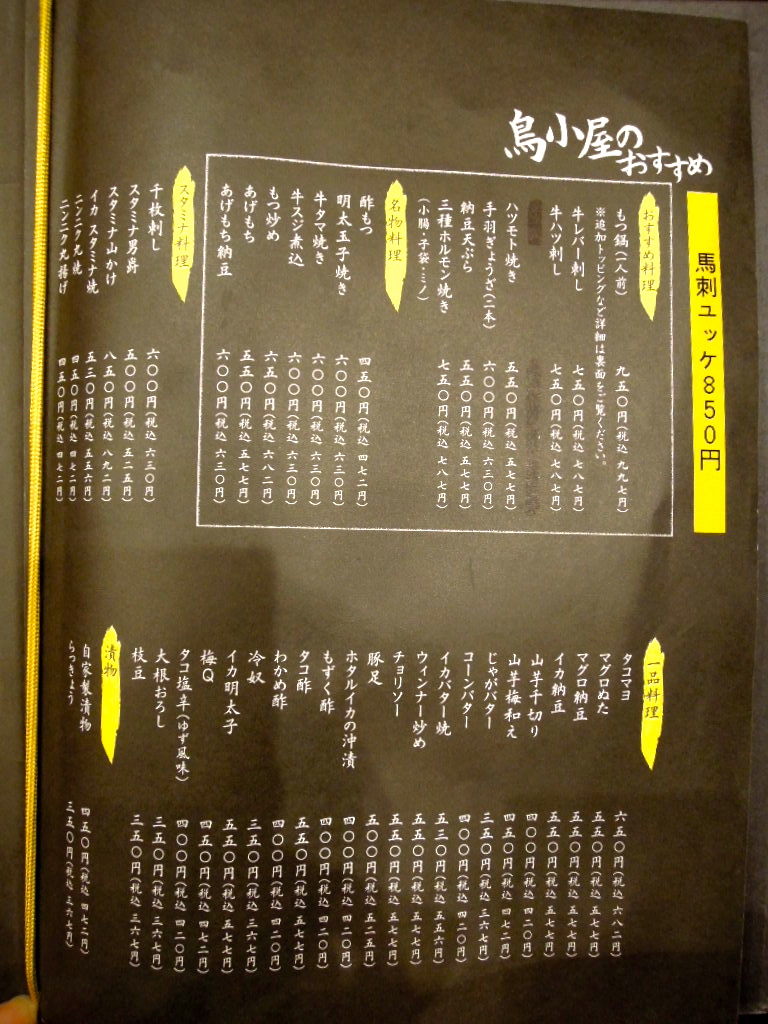 鳥小屋の
おすすめ
馬刺ユッケ850円
おすすめ料理
もつ鍋(一人前) 九五〇円(税込 九九七円)
※追加トッピングなど詳細は裏面をご覧ください。
牛レバー刺し 七五〇円(税込 七八七円)
牛ハツ刺し 七五〇円(税込 七八七円)
ハツモト焼き 五五〇円(税込 五七七円)
手羽ぎょうざ(二本) 六〇〇円(税込 六三〇円)
納豆天ぷら 五五〇円(税込 五七七円)
三種ホルモン焼き 七五〇円(税込 七八七円)
(小腸・子袋・ミノ)
名物料理
酢もつ 四五〇円(税込 四七二円)
明太玉子焼き 六〇〇円(税込 六三〇円)
牛タマ焼き 六〇〇円(税込 六三〇円)
牛スジ煮込 六〇〇円(税込 六三〇円)
もつ炒め 六五〇円(税込 六八二円)
あげもち 五五〇円(税込 五七七円)
あげもち納豆 六〇〇円(税込 六三〇円)
スタミナ料理
千枚刺し 六〇〇円(税込 六三〇円)
スタミナ男爵 五〇〇円(税込 五二五円)
スタミナ山かけ 八五〇円(税込 八九二円)
イカ スタミナ焼 五三〇円(税込 五五六円)
ニンニク丸焼 四五〇円(税込 四七二円)
ニンニク丸揚げ 四五〇円(税込 四七二円)
一品料理
タコマヨ 六五〇円(税込 六八二円)
マグロぬた 五五〇円(税込 五七七円)
マグロ納豆 五五〇円(税込 五七七円)
イカ納豆 五五〇円(税込 五七七円)
山芋千切り 四〇〇円(税込 四二〇円)
山芋梅和え 四五〇円(税込 四七二円)
じゃがバター 三五〇円(税込 三六七円)
コーンバター 四〇〇円(税込 四二〇円)
イカバター焼 五三〇円(税込 五五六円)
ウィンナー炒め 五五〇円(税込 五七七円)
チョリソー 五五〇円(税込 五七七円)
豚足 五〇〇円(税込 五二五円)
ホタルイカの沖漬 四〇〇円(税込 四二〇円)
もずく酢 四〇〇円(税込 四二〇円)
タコ酢 五五〇円(税込 五七七円)
わかめ酢 四〇〇円(税込 四二〇円)
冷奴 三五〇円(税込 三六七円)
イカ明太子 五五〇円(税込 五七七円)
梅Q 四五〇円(税込 四七二円)
タコ塩辛(ゆず風味) 四〇〇円(税込 四二〇円)
大根おろし 三五〇円(税込 三六七円)
枝豆 三五〇円(税込 三六七円)
漬物
自家製漬物 四五〇円(税込 四七二円)
らっきょう 三五〇円(税込 三六七円)